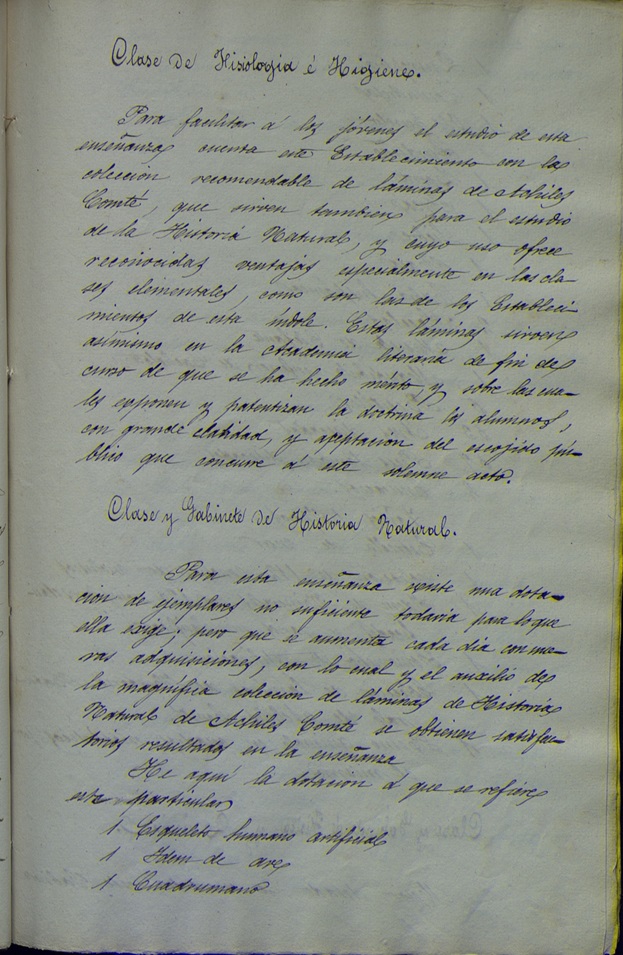 Clase de Fisiología é Higiene.
Para facilitar á los jóvenes el estudio de esta
enseñanza cuenta este Establecimiento con la
colección recomendable de láminas de Achiles
Comté, que sirven tambien para el estudio
de la Historia Natural, y cuyo uso ofrece
reconocidas ventajas especialmente en las cla-
ses elementales, como son las de los Estableci-
mientos de esta índole. Estas láminas sirven
asímismo en la Academia literaria de fin de
curso de que se ha hecho mérito y sobre las cua-
les exponen y patentizan la doctrina los alumnos,
con grande claridad, y aceptacion del escojido pú-
blico que concurre á este solemne acto.
Clase y Gabinete de Historia Natural.
Para esta enseñanza existe una dota-
cion de ejemplares no suficiente todavia para lo que
ella exige; pero que se aumenta cada dia con nue-
vas adquisiciones, con lo cual y el auxilio de
la magnífica colección de láminas de Historia
Natural de Achiles Comté se obtienen satisfac-
torios resultados en la enseñanza
He aquí la dotacion á que se refiere
este particular
1 Esqueleto humano artificial
1 Idem de ave
1 Cuadrumano